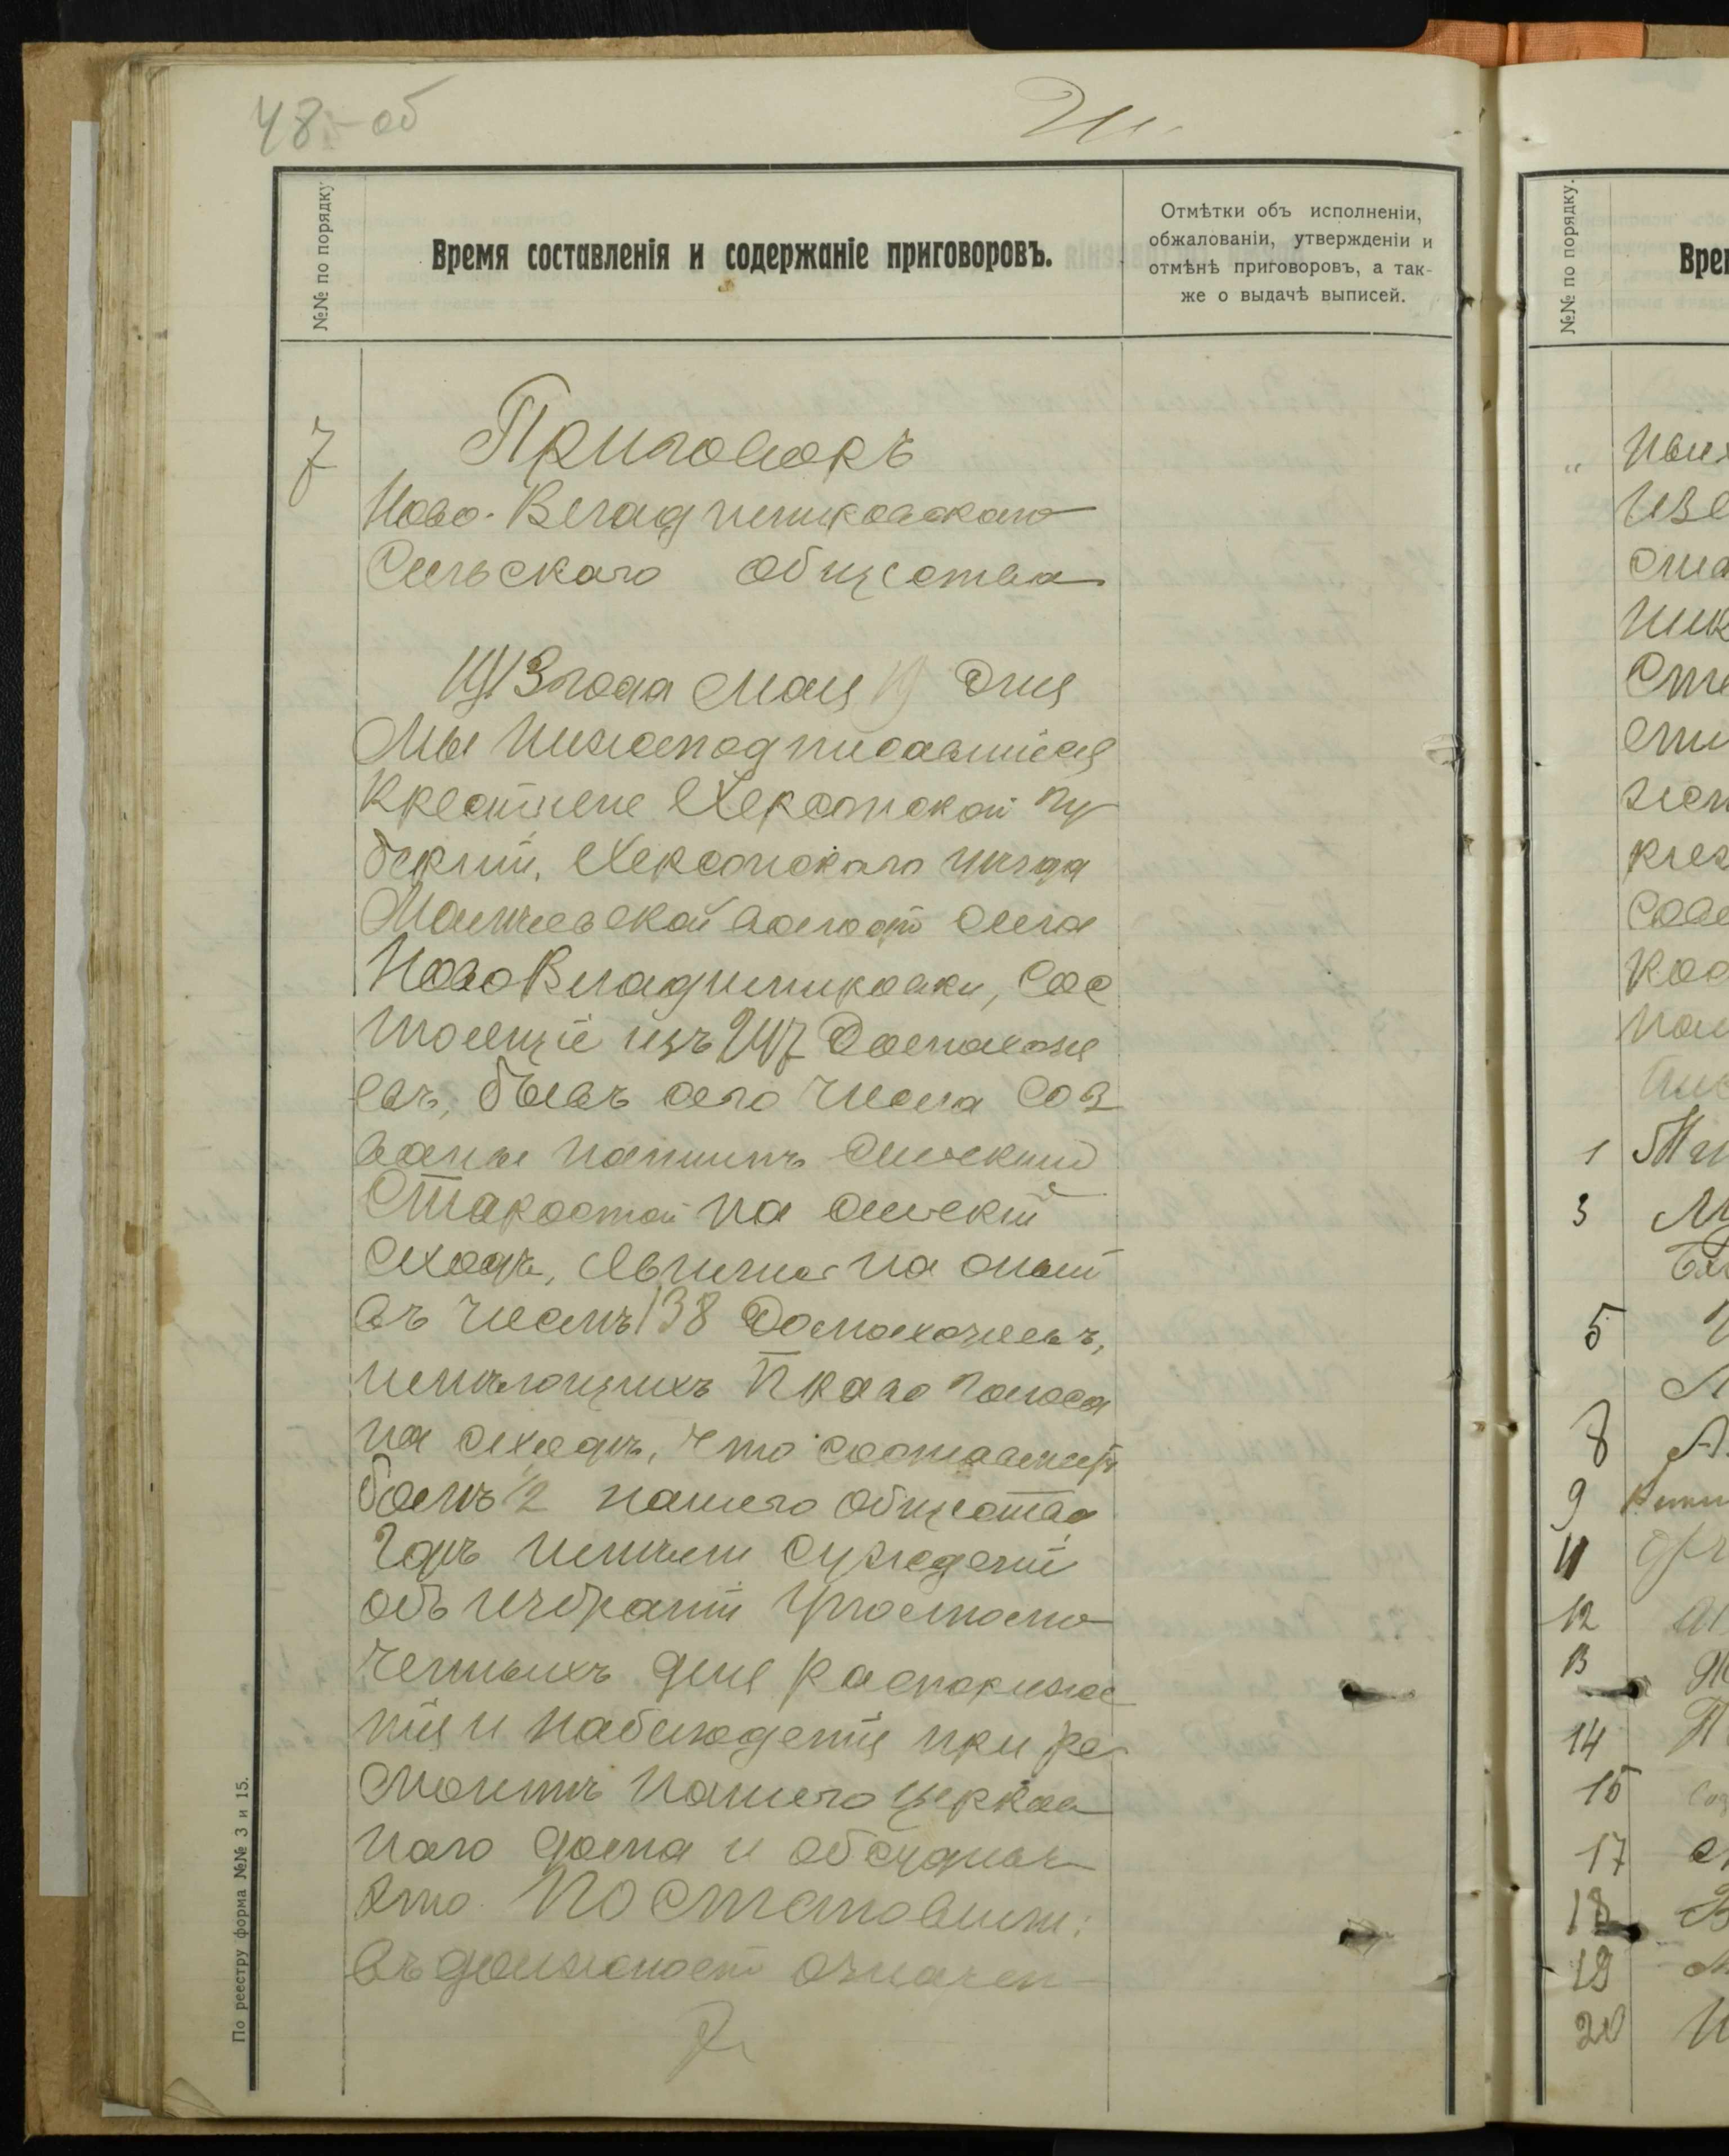 48-об
№№ по порядку.
Время составленія и содержаніе приговоровъ.
Отмѣтки объ исполненіи,
обжалованіи, утвержденіи и
отмѣнѣ приговоровъ, а так-
же о выдачѣ выписей.
7
Приговоръ
Ново-Владимировскаго
Сельскаго общества
1913 года Мая 19 дня
Мы нижеподписавшіеся
Крестьяне Херсонской гу
берніи, Херсонскаго уезда
волости села
Ново Владимировки, сос
тоящіе изъ 247 Домохозяе
въ, бывъ сего числа соз
ваны нашимъ сельскимъ
Старостой на сельскій
сходъ, явились на оный
въ числѣ 138 Домохозяевъ,
имѣющихъ право голоса
на сходѣ, что составляетъ
болѣе 1/2 нашего общества
Гдѣ имѣли сужденіе
объ избраніи уполномо
ченныхъ для распоряже
нія и наблюденія при ре
монтѣ нашего церков
наго дома и обсудивъ
это постановили:
въ должность означен
По реестру форма №№ 3 и 15.
№№ по порядку.
Врем
1
3
5
8
9
11
12
13
14
15
17
18
19
20